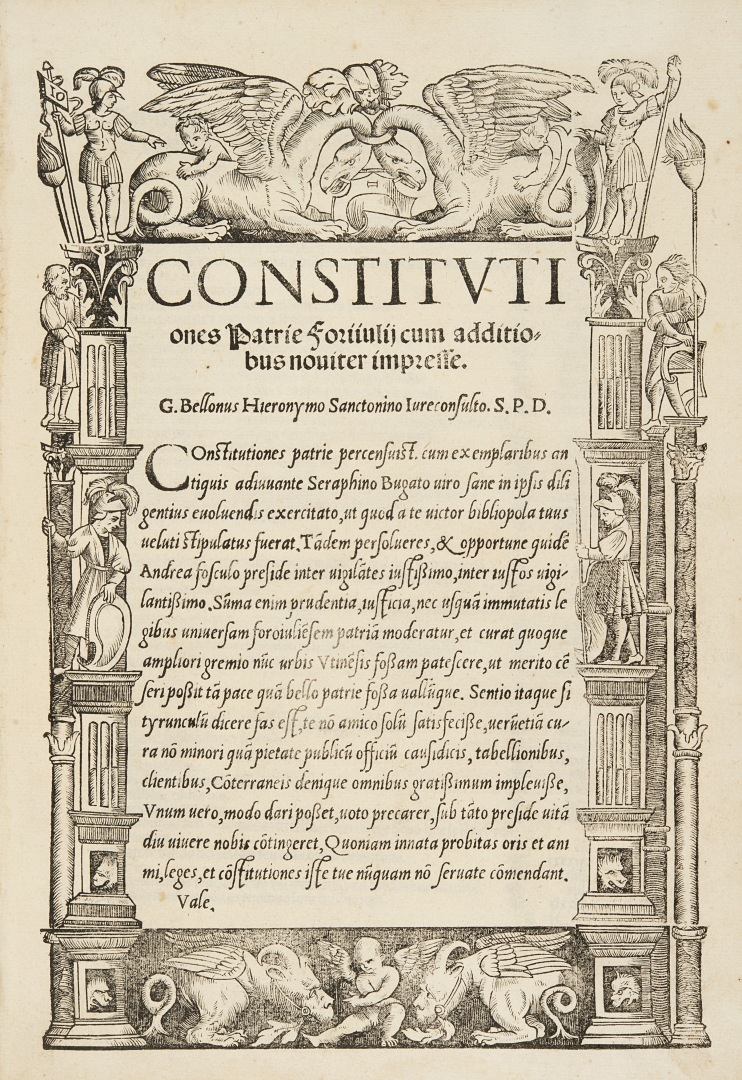 CONSTITVTI
ones Patrie Foriiulij cum additio-
bus nouiter impresse.
G. Bellonus Hieronymo Sanctonino Iureconsulto. S. P. D.
COnstitutiones patrie percensuist. cum exemplaribus an
tiquis adiuuante Seraphino Bugato uiro sane in ipsis dili
gentius euoluendis exercitato, ut quod a te uictor bibliopola tuus
ueluti stipulatus fuerat. Tãdem persolueres, & opportune quidẽ
Andrea fosculo preside inter uigilãtes iustißimo, inter iustos uigi-
lantißimo. Sũma enim prudentia, iusticia, nec usquã immutatis le
gibus uniuersam foroiuliẽsem patriã moderatur, et curat quoque
ampliori gremio nũc urbis Vtinẽsis foßam patescere, ut merito cẽ
seri poßit tã pace quã bello patrie foßa uallũque. Sentio itaque si
tyrunculũ dicere fas est, te nõ amico solũ satisfecisse, uerũetiã cu-
ra nõ minori quã pietate publicũ officiũ causidicis, tabellionibus,
clientibus, Cõterraneis denique omnibus gratißimum impleuisse,
Vnum uero, modo dari posset, uoto precarer, sub tãto preside uitã
diu uiuere nobis cõtingeret, Quoniam innata probitas oris et ani
mi, leges, et cõstitutiones iste tue nũquam nõ seruate cõmendant.
Vale.